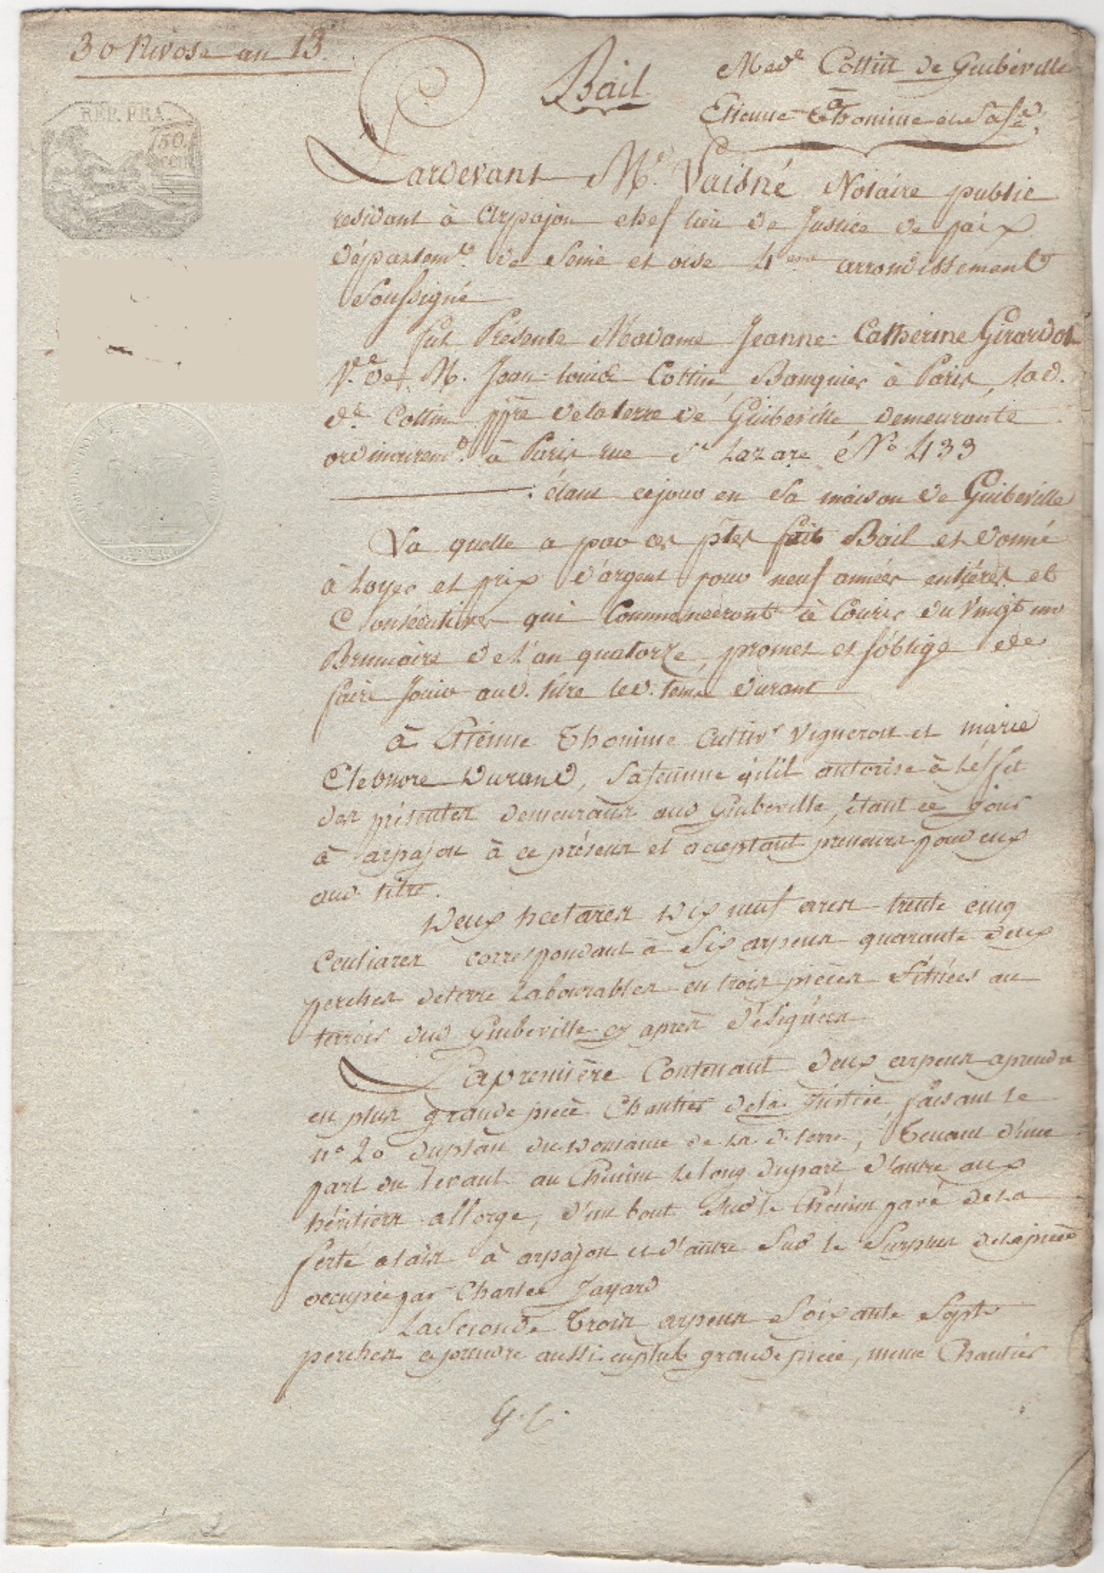 30 Nivose an 13.
Bail
Made Cottin de Guibeville
Etienne Thomine et sa fe.
REP. FRA.
50
cen
Pardevant Me. Vaisné Notaire public
residant à Arpajon chef lieu de Justice de paix
Départemt. de Seine et oise 4eme arrondissement
Soussigné
fut Présente Madame Jeanne Catherine Girardot
Ve. de M. Jean Louis Cottin Banquier à Paris, lad.
de. Cottin ppre de la terre de Guibeville demeurante
ordinairemt. à Paris rue St Lazare No 433
étant cejour en sa maison de Guibeville
La quelle a par ces ptes fait Bail et donné
à loyer et prix d'argent pour neuf années entières et
Consécutives qui Commenceront à Courir du Vingt un
Brumaire de l'an quatorze, promet et s'oblige de
faire Jouir aud. titre led. tems durant
à Etienne Thomine Cultivr Vigneron et marie
Eleonore Durand, sa femme qu'il autorise à l'effet
des présentes demeurans aud Guibeville, étant ce jour
à arpajon à ce présens et acceptant preneurs pour eux
aud. titre.
Deux hectares dix neuf ares trente cinq
Centiares correspondant à Six arpens quarante deux
perches de terre Labourables en trois pièces Situées au
terroir dud Guibeville cy après désignées
La première Contenant deux arpens aprendre
en plus grande pièce Chantier dela Justice, faisant le
no 20 duplan du Domaine de La d. terre, Tenant d'une
part du levant au Chemin le long du parc d'autre aux
héritiers allorge, d'un bout Sur le Chemin pavé de la
ferté alais à arpajon et d'autre Sur le Surplus dela pièce
occupée par Charles Jayard
La Seconde Trois arpens Soixante Sept
perches aprendre aussi en plus grande pièce, meme Chantier
G. C.